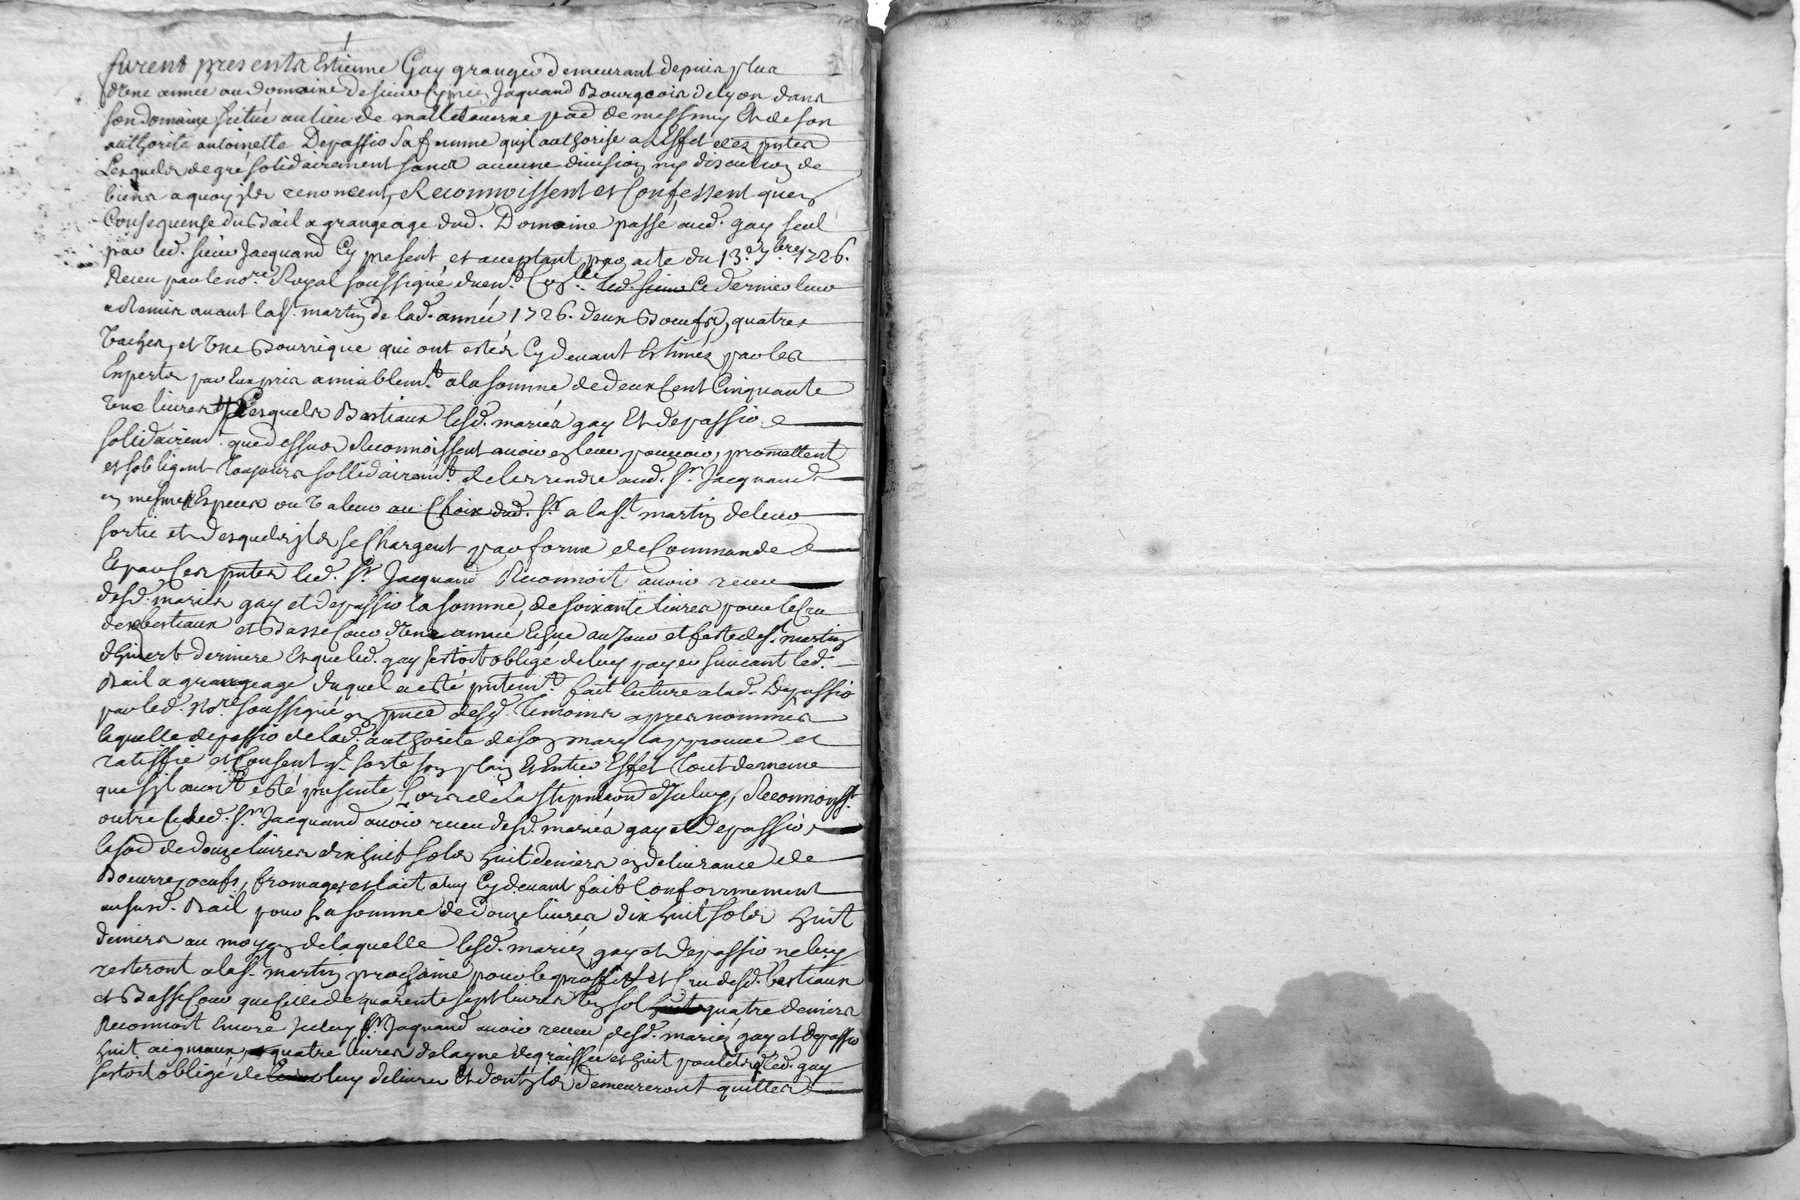 furent presents Estienne Gay granger demeurant depuis plus
d'une année au domaine de sieur Jaquand Bourgeois de lyon dans
son domaine scitue au lieu de malletaverne par. de messimy Et de son
authorité antoinette Depassio sa femme qu'il authorise a L'Effet des pntes
Lesquels de gré solidairement sans aucune division ny discution de
biens a quoy ils renoncent, Reconnoissent et Confessent que en
Consequense du Bail a grangeage dud. Domaine passé aud. gay seul
par led. sieur Jacquand Cy present et acceptant par acte du 13.e 7.bre 1726.
Receu par le no.re Royal soussigné led. sieur Ce dernier leur
a Remis avant la s.t martin de lad. année 1726. deux Boeufs, quatres
Vaches, et Une Bourrique qui ont estés Cy devant Estimés par les
Experts par Eux pris amiablem.t a la somme de deux Cent Cinquante
Une livres Lesquels Bestiaux lesd. mariés gay Et depassio
solidairem.t que dessus Reconnoissent avoir en leur pouvoir, promettent
et s'obligent Toujours sollidairem.t de les rendre aud. s.r Jacquand
en mesmes Especes ou Valeur au Choix dud. s.r a la s.t martin de leur
sortie et desquels ils se Chargent par forme de Commande
Et par Ces pntes led. s.r Jacquand Reconnoit avoir receu
desd. mariés gay et depassio la somme de soixante livres pour le Cru
des bestiaux et Basse Cour d'Une année Echue au Jour et feste de s.t martin
d'hivert derniere Et que led. gay s'estoit obligé de luy payer suivant led.
Bail a grangeage duquel a esté pntem.t fait lecture a lad. Depassio
par led. No.re soussigné en pnce desd. Temoins apres nommés
laquelle depassio de lad. authorité de son mary l'approuve et
ratiffie et Consent q.l sorte son plain Et Entier Effet tout de meme
que s'il avoit esté presente Lors de la stipulaon d'Iceluy, Reconnoiss.t
outre Ce led. s.r Jacquand avoir receu desd. mariés gay et depassio
la so.e de douze livres dix huit sols huit deniers en delivrance de
Boeurre, oeufs, fromages et lait a luy Cy devant fait Conformement
au susd. Bail pour la somme de douze livres dix huit sols huit
deniers au moyen de laquelle lesd. mariés gay et depassio ne luy
resteront a la s.t martin prochaine pour le proffit et Cru desd. bestiaux
et Basse Cour que Celle de quarente sept livres Un sol quatre deniers
Reconnoit Encore Iceluy s.r Jaquand avoir receu desd. mariés gay et depassio
huit aigneaux, quatre livres de layne degraissée et huit poulets que led. gay
s'estoit obligé de luy delivrer Et dont ils demeureront quittes